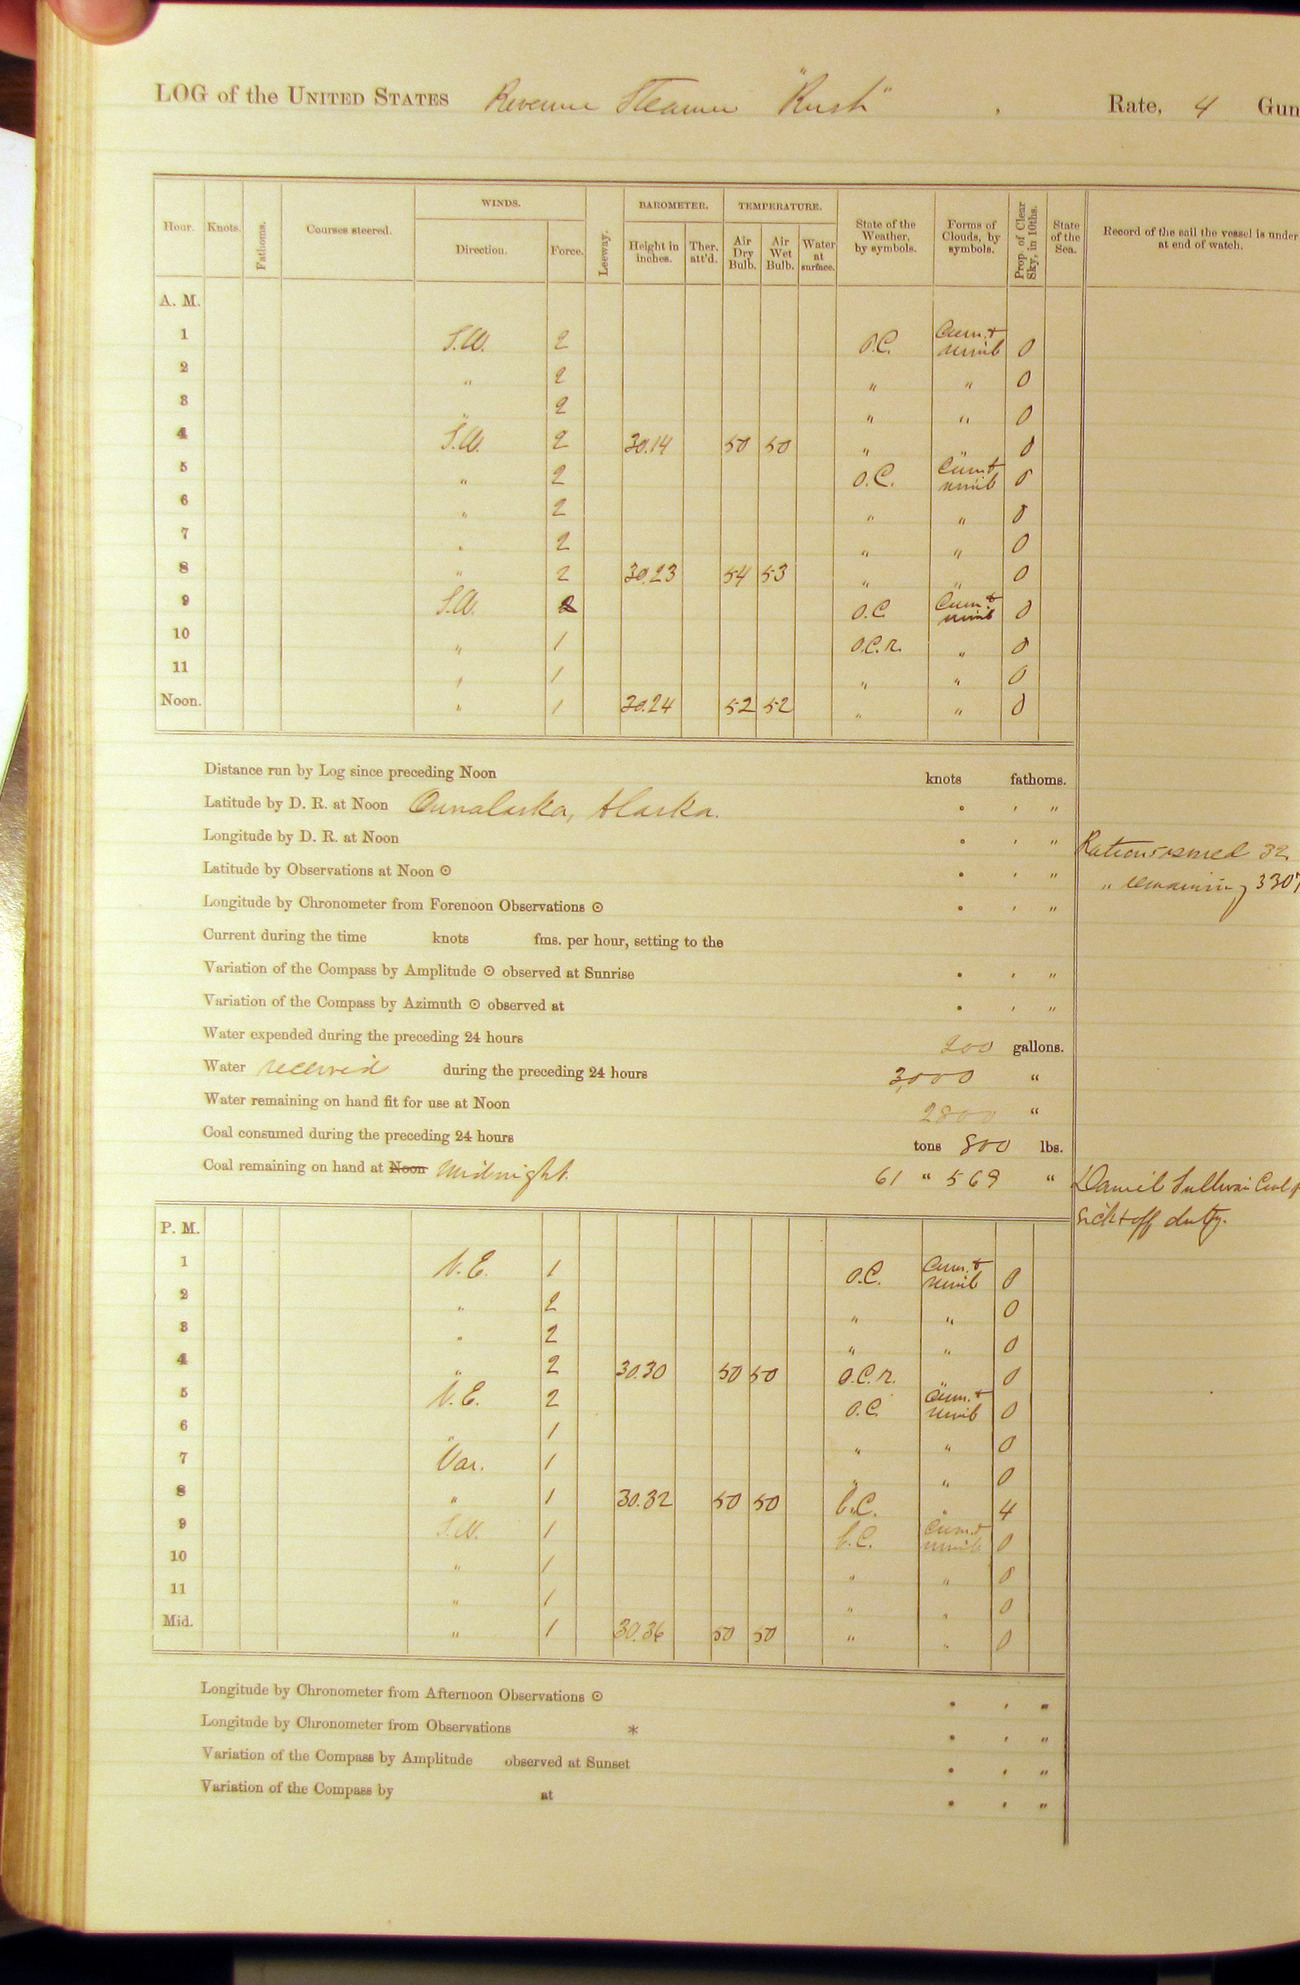 LOG of the UNITED STATES Revenue Steamer "Rush", Rate, 4 Gun
Hour. Knots. Fathoms. Courses steered. WINDS. Direction. Force. Leeway. BAROMETER. Height in inches. Ther. att'd. TEMPERATURE. Air Dry Bulb. Air Wet Bulb. Water at surface. State of the Weather, by symbols. Forms of Clouds, by symbols. Prop. of Clear Sky, in 10ths. State of the Sea. Record of the sail the vessel is under at end of watch.
A. M.
1 S.W. 2 O.C. Cum. & nimb 0
2 " 2 " " 0
3 " 2 " " 0
4 S.W. 2 30.14 50 50 " " 0
5 " 2 O.C. Cum. & nimb 0
6 " 2 " " 0
7 " 2 " " 0
8 " 2 30.23 54 53 " " 0
9 S.W. 2 O.C. Cum. & nimb 0
10 " 1 O.C.R. " 0
11 " 1 " " 0
Noon. " 1 30.24 52 52 " " 0
Distance run by Log since preceding Noon knots fathoms.
Latitude by D. R. at Noon Ounalaska, Alaska. ° ′ ″
Longitude by D. R. at Noon ° ′ ″
Rations issued 32
Latitude by Observations at Noon ⊙ ° ′ ″
" remaining 3307
Longitude by Chronometer from Forenoon Observations ⊙ ° ′ ″
Current during the time knots fms. per hour, setting to the
Variation of the Compass by Amplitude ⊙ observed at Sunrise ° ′ ″
Variation of the Compass by Azimuth ⊙ observed at ° ′ ″
Water expended during the preceding 24 hours 200 gallons.
Water received during the preceding 24 hours 3,000 "
Water remaining on hand fit for use at Noon 2800 "
Coal consumed during the preceding 24 hours tons 800 lbs.
Coal remaining on hand at Noon Midnight. 61 " 569 "
Daniel Sullivan
sick & off duty.
P. M.
1 N.E. 1 O.C. Cum. & nimb 0
2 " 2 " " 0
3 " 2 " " 0
4 " 2 30.30 50 50 O.C.R. " 0
5 N.E. 2 O.C. Cum. & nimb 0
6 " 1 " " 0
7 Var. 1 " " 0
8 " 1 30.32 50 50 b.C. " 4
9 S.W. 1 b.C. Cum. & nimb 0
10 " 1 " " 0
11 " 1 " " 0
Mid. " 1 30.36 50 50 " " 0
Longitude by Chronometer from Afternoon Observations ⊙ ° ′ ″
Longitude by Chronometer from Observations * ° ′ ″
Variation of the Compass by Amplitude observed at Sunset ° ′ ″
Variation of the Compass by at ° ′ ″